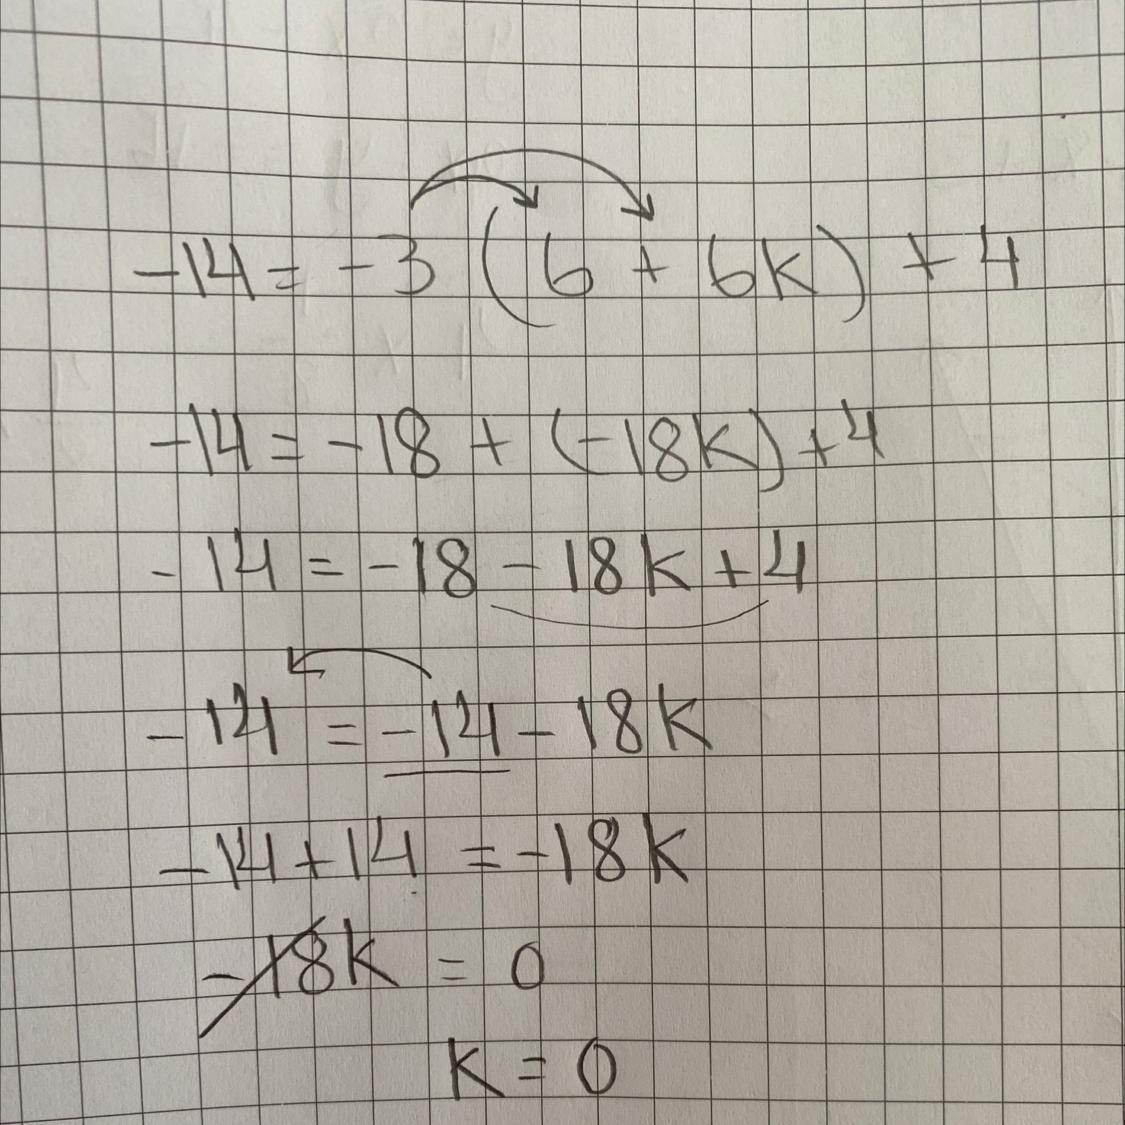 -14 = -3 (6 + 6k) + 4
-14 = -18 + (-18k) + 4
-14 = -18 - 18k + 4
-14 = -14 - 18k
-14 + 14 = -18k
-18k = 0
k = 0